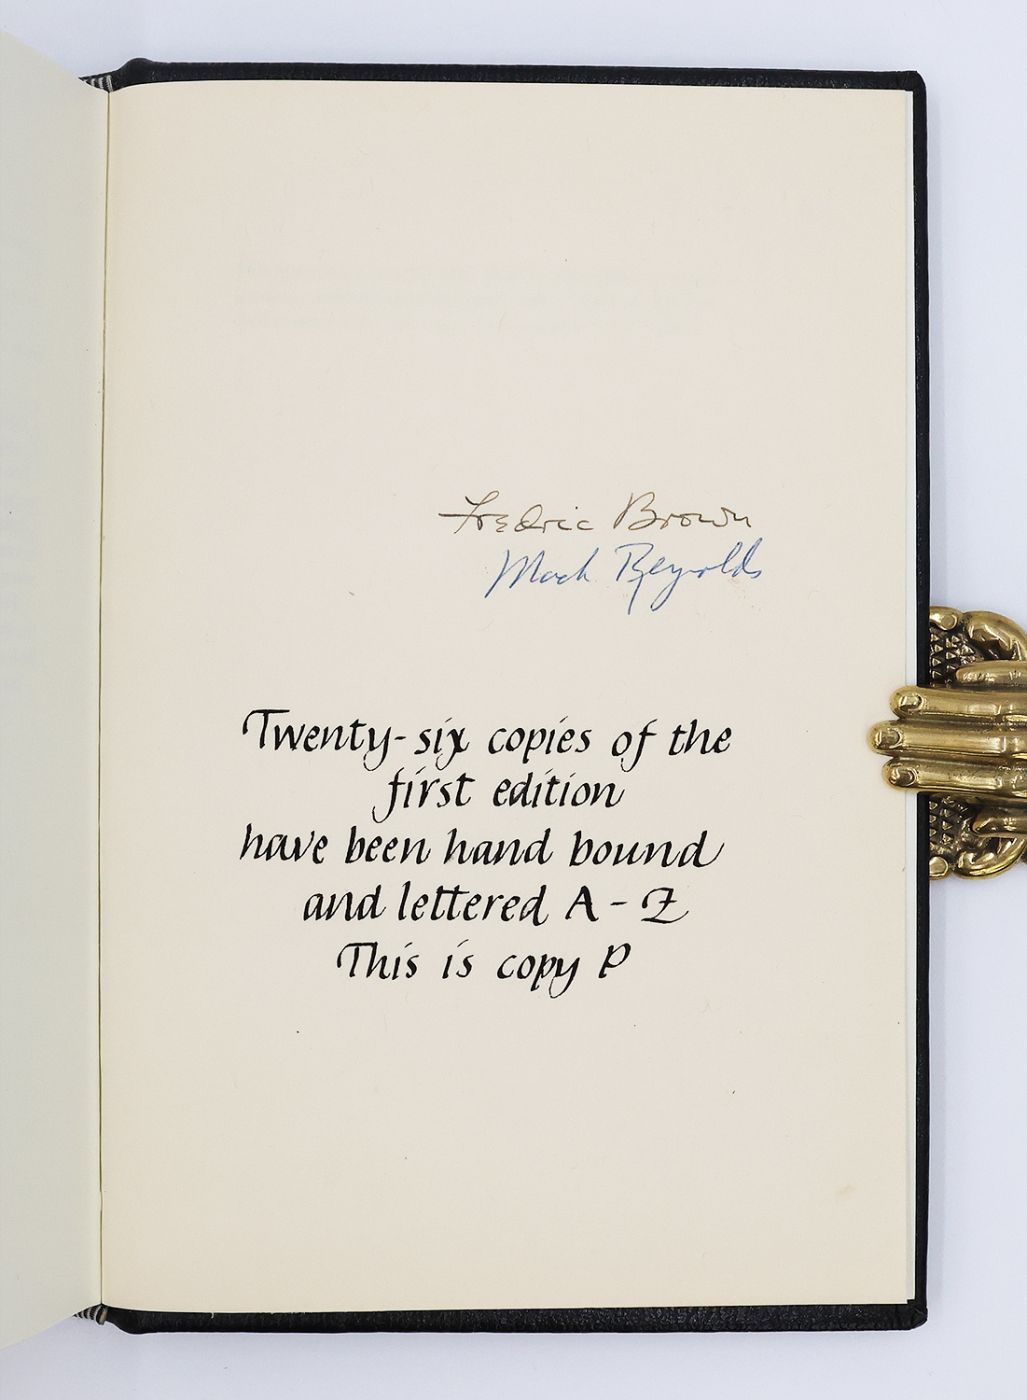 Fredric Brown
Mack Reynolds
Twenty-six copies of the
first edition
have been hand bound
and lettered A - Z
This is copy P